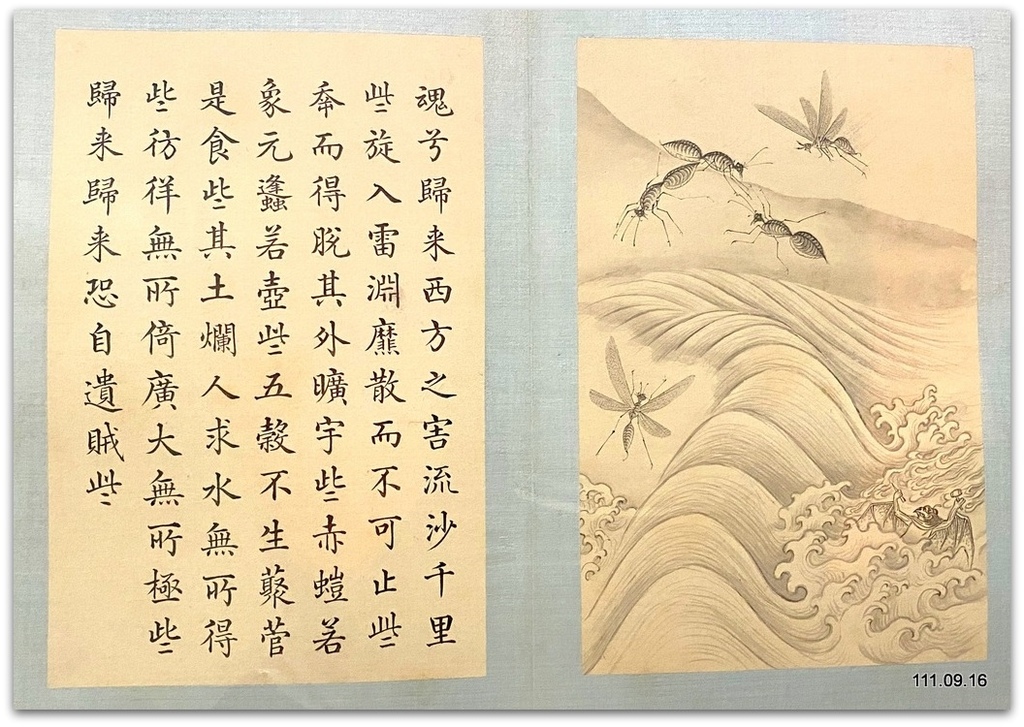 魂兮歸来西方之害流沙千里
些旋入雷淵䕷散而不可止些
𠦪而得脫其外曠宇些赤螘若
象元蠭若壺些五穀不生藂菅
是食些其土爛人求水無所得
些彷徉無所倚廣大無所極些
歸来歸来恐自遺賊些
111.09.16